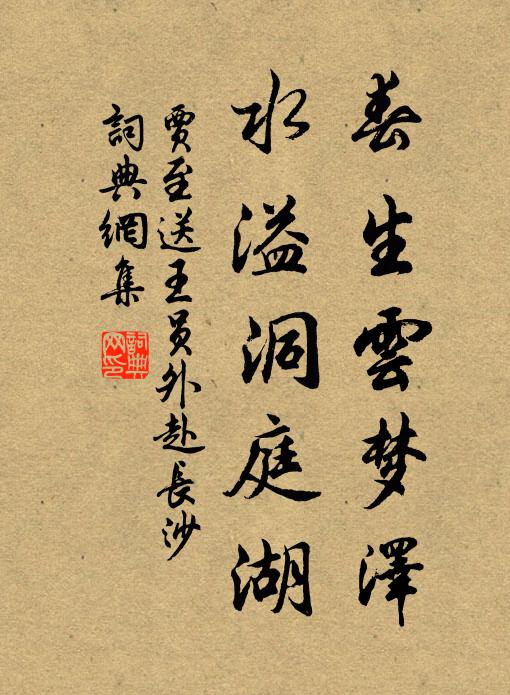 春生雲梦澤
水溢洞庭湖
贾至送王员外赴長沙
詞典網集
詞典网印